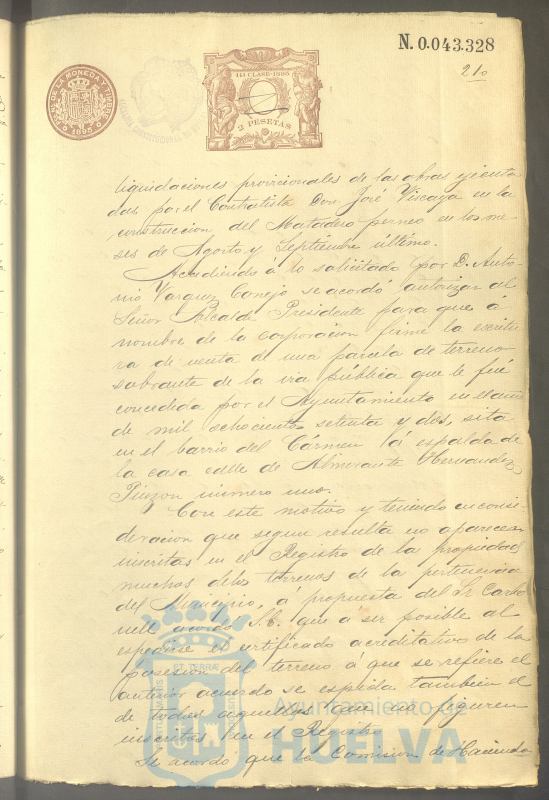 N. 0.043.328
21
DIREC. DE LA MONEDA Y TIMBRE
1895
11ª CLASE-1895
2 PESETAS
liquidaciones provicionales de las obras ejecuta
das por el Contratista Don José Viscaya en la
construcción del Matadero porneo en los me-
ses de Agosto y Septiembre último.
Accediendo á lo solicitado por D. Anto-
nio Vazquez Conejo se acordó autorizar al
Señor Alcalde Presidente para que á
nombre de la corporacion firme la escritu-
ra de venta de una parcela de terreno
sobrante de la via pública que le fué
concedida por el Ayuntamiento en el año
de mil ochocientos setenta y dos, sita
en el barrio del Cármen á espalda de
la casa calle de Almirante Hernandez
Pinzon número uno.
Con este motivo y teniendo en consi-
deracion que segun resulta no aparecen
inscritas en el Registro de la propiedad
muchos de los terrenos de la pertenencia
del Municipio, á propuesta del Sr Carbo
nell acordó S.E. que á ser posible al
espedirse el certificado acreditativo de la
posesion del terreno á que se refiere el
anterior acuerdo se espida tambien el
de todos aquellos que no figuren
inscritos en el Registro
Se acordo que la Comision de Hacienda
Ayuntamiento de
HUELVA